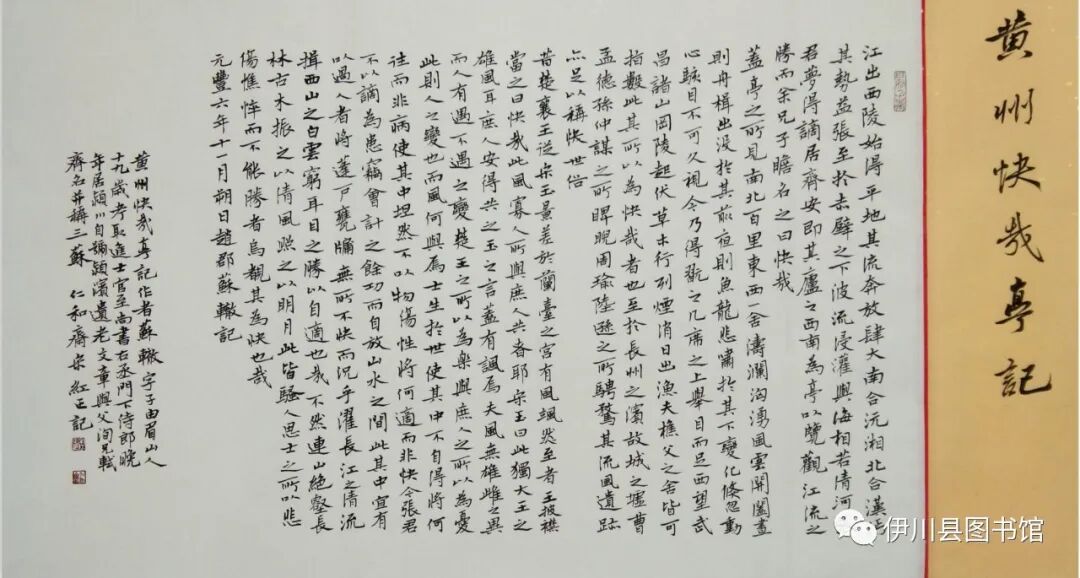 黄州快哉亭記
江出西陵始得平地其流奔放肆大南合沅湘北合漢沔
其勢益張至於赤壁之下波流浸灌與海相若清河
君夢得謫居齊安即其廬之西南為亭以覽觀江流之
勝而余兄子瞻名之曰快哉
蓋亭之所見南北百里東西一舍濤瀾洶湧風雲開闔晝
則舟楫出沒於其前夜則魚龍悲嘯於其下變化倏忽動
心駭目不可久視今乃得翫之几席之上舉目而足西望武
昌諸山岡陵起伏草木行列煙消日出漁夫樵父之舍皆可
指數此其所以為快哉者也至於長州之濱故城之墟曹
孟德孫仲謀之所睥睨周瑜陸遜之所騁騖其流風遺跡
亦足以稱快世俗
昔楚襄王從宋玉景差於蘭臺之宮有風颯然至者王披襟
當之曰快哉此風寡人所與庶人共者耶宋玉曰此獨大王之
雄風耳庶人安得共之玉之言蓋有諷焉夫風無雄雌之異
而人有遇不遇之變楚王之所以為樂與庶人之所以為憂
此則人之變也而風何與焉士生於世使其中不自得將何
往而非病使其中坦然不以物傷性將何適而非快今張君
不以謫為患竊會計之餘功而自放山水之間此其中宜有
以過人者將蓬戶甕牖無所不快而況乎濯長江之清流
揖西山之白雲窮耳目之勝以自適也哉不然連山絕壑長
林古木振之以清風照之以明月此皆騷人思士之所以悲
傷憔悴而不能勝者烏覩其為快也哉
元豐六年十一月朔日趙郡蘇轍記
黃州快哉亭記作者蘇轍字子由眉山人
十九歲考取進士官至尚書右丞門下侍郎晚
年居潁川自號潁濱遺老文章與父洵兄軾
齊名并稱三蘇 仁和齋宋紅正記
伊川县图书馆